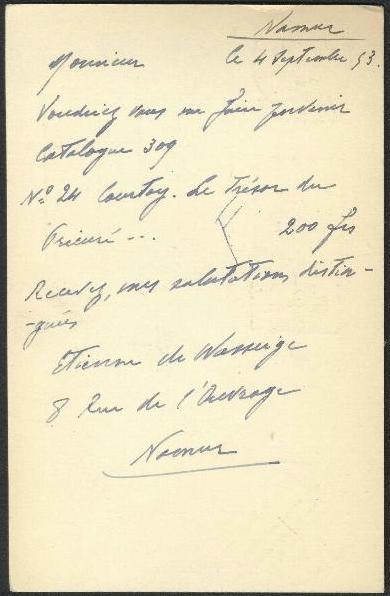 Namur
le 4 Septembre 53.
Monsieur
Voudriez vous me faire parvenir
Catalogue 309
N° 24 Courtoy. Le Trésor du
Prieuré...
200 frs
Recevez, mes salutations distin-
-guées
Etienne de Wasseige
8 Rue de l'Ouvrage
Namur